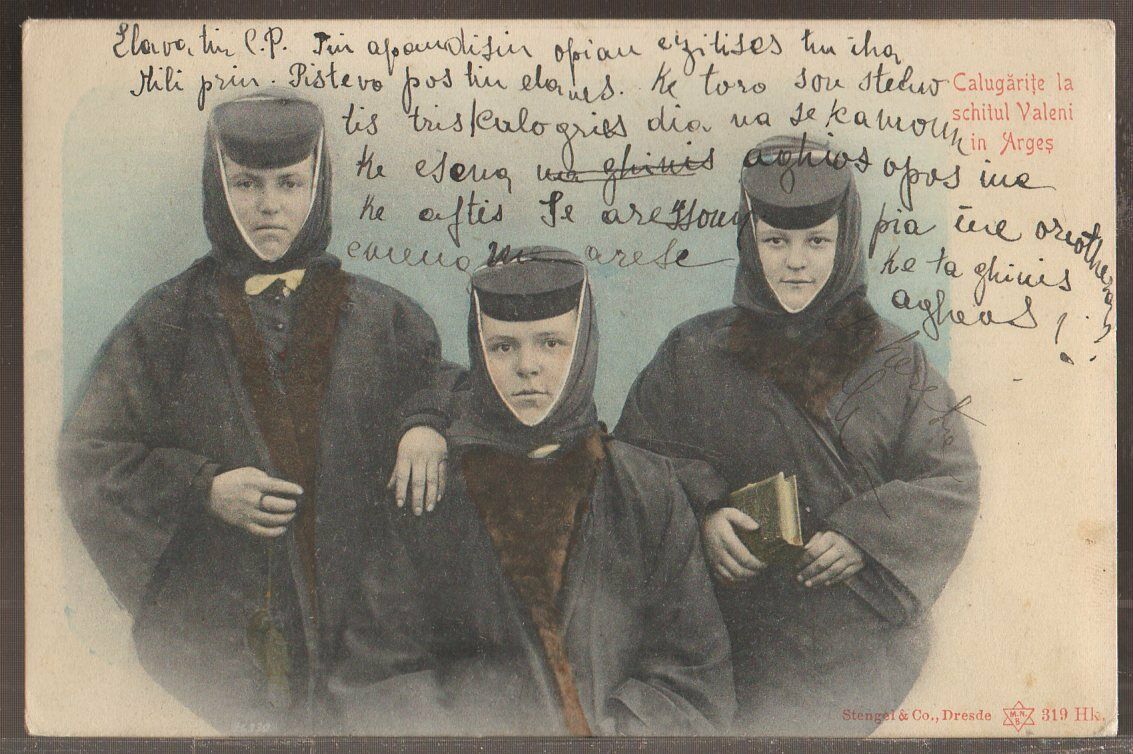 Elava tin C.P. Tin apandisin opian ezitises tin iha
stili prin. Pistevo pos tin elaves. Ke tora sou stelno
tis tris kalogries dia na se kamoun
ke esena na ghinis aghios opos ine
ke aftis Se aressoun
emena me arese
pia ine oreotheri
ke ta ghinis
aghios !
Calugărițe la
schitul Valeni
in Argeș
Stengel & Co., Dresde M.N.B. 319 Hk.